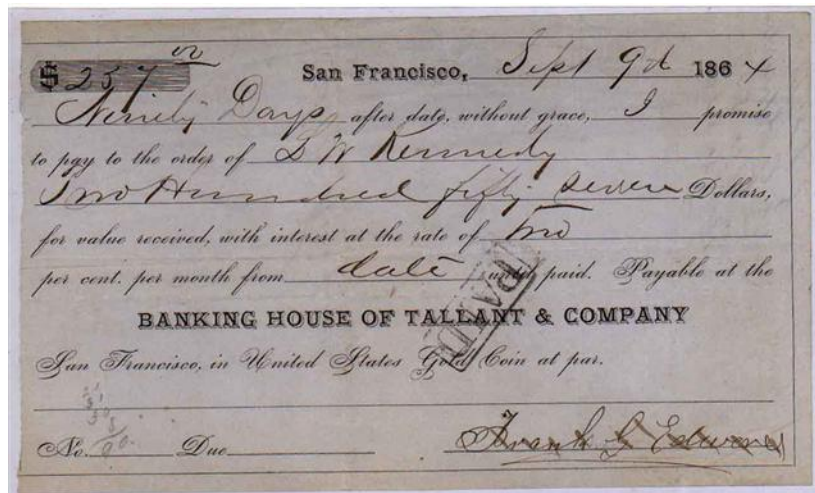 $ 257 00
San Francisco, Sept 9th 1864
Ninety Days after date, without grace, I promise
to pay to the order of L W Kennedy
Two Hundred fifty seven Dollars,
for value received, with interest at the rate of two
per cent. per month from date until paid. Payable at the
PAID
BANKING HOUSE OF TALLANT & COMPANY
San Francisco, in United States Gold Coin at par.
No. Due
Frank G Edwards